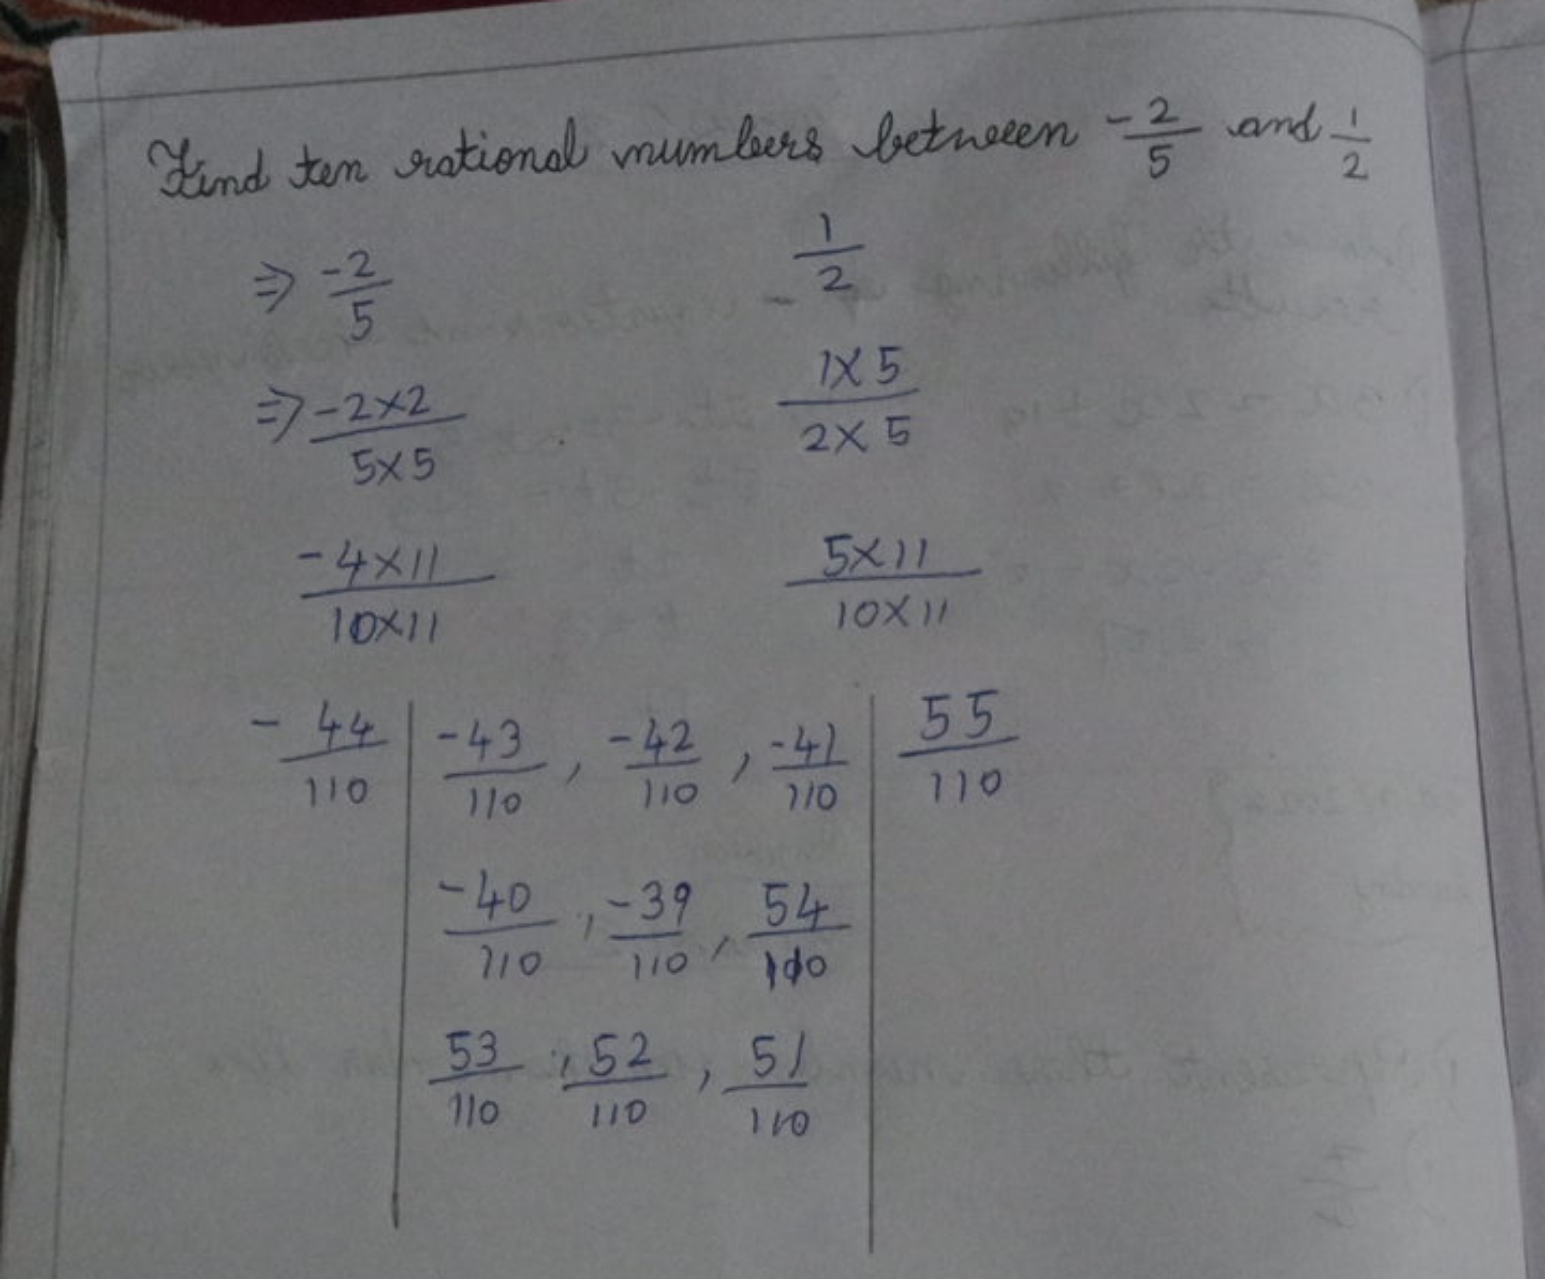 Find ten rational numbers between -2/5 and 1/2
⇒ -2/5 1/2
⇒ -2×2/5×5 1×5/2×5
-4×11/10×11 5×11/10×11
-44/110 | -43/110, -42/110, -41/110 | 55/110
-40/110, -39/110, 54/110
53/110, 52/110, 51/110